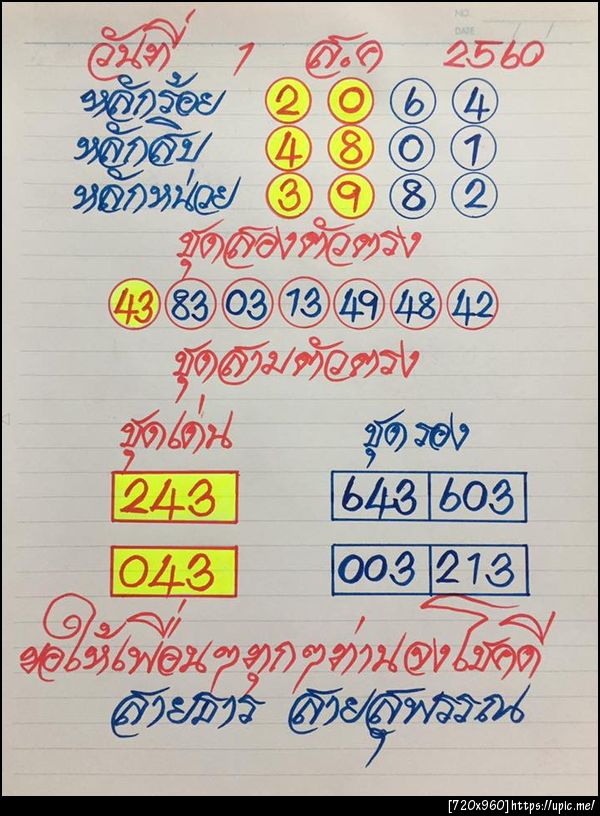 NO.
DATE
วันที่ 1 ส.ค 2560
หลักร้อย 2 0 6 4
หลักสิบ 4 8 0 1
หลักหน่วย 3 9 8 2
ชุดสองตัวตรง
43 83 03 13 49 48 42
ชุดสามตัวตรง
ชุดเด่น ชุดรอง
243 643 603
043 003 213
ขอให้เพื่อนๆทุกๆท่านจงโชคดี
สายธาร สายสุพรรณ
[720x960]https://upic.me/